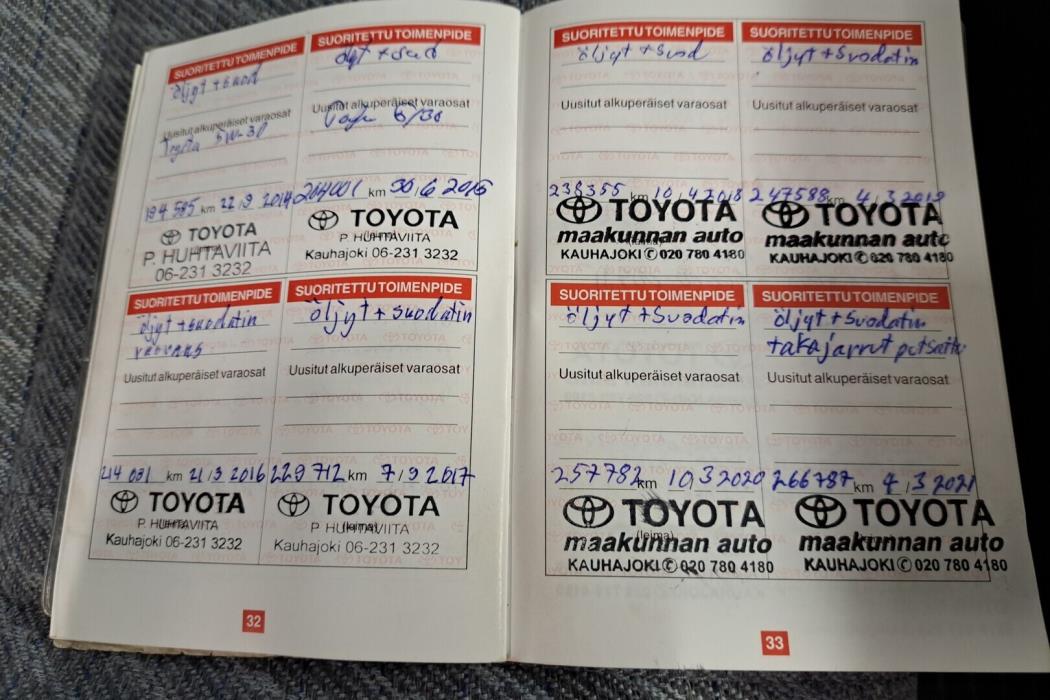 SUORITETTU TOIMENPIDE
öljyt + suod
Uusitut alkuperäiset varaosat
Toyota 5W-30
194 585 km 22/9 2014
TOYOTA
P. HUHTAVIITA
06-231 3232
SUORITETTU TOIMENPIDE
Uusitut alkuperäiset varaosat
204001 km 30/6 2015
TOYOTA
P. HUHTAVIITA
Kauhajoki 06-231 3232
SUORITETTU TOIMENPIDE
öljyt + suodatin
Uusitut alkuperäiset varaosat
214 031 km 21/3 2016
TOYOTA
P. HUHTAVIITA
Kauhajoki 06-231 3232
SUORITETTU TOIMENPIDE
öljyt + suodatin
Uusitut alkuperäiset varaosat
229 712 km 7/9 2017
TOYOTA
P HUHTAVIITA
(leima)
Kauhajoki 06-231 3232
32
SUORITETTU TOIMENPIDE
öljyt + suod
Uusitut alkuperäiset varaosat
238355 km 10/4 2018
TOYOTA
maakunnan auto
KAUHAJOKI ✆ 020 780 4180
SUORITETTU TOIMENPIDE
öljyt + suodatin
Uusitut alkuperäiset varaosat
247588 km 4/3 2019
TOYOTA
maakunnan auto
KAUHAJOKI ✆ 020 780 4180
SUORITETTU TOIMENPIDE
öljyt + suodatin
Uusitut alkuperäiset varaosat
257782 km 10/3 2020
TOYOTA
(leima)
maakunnan auto
KAUHAJOKI ✆ 020 780 4180
SUORITETTU TOIMENPIDE
öljyt + suodatin
takajarrut
Uusitut alkuperäiset varaosat
266787 km 4/3 2021
TOYOTA
maakunnan auto
KAUHAJOKI ✆ 020 780 4180
33